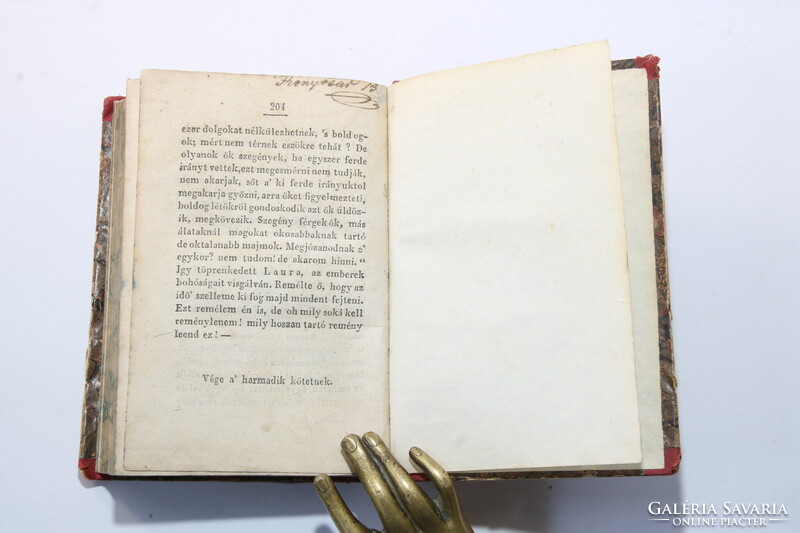 Könyvtár 13
201
ezer dolgokat nélkülezhetnek, 's boldog-
ok; mért nem térnek eszökre tehát ? De
olyanok ők szegények, ha egyszer ferde
irányt vettek, ezt megesmérni nem tudják,
nem akarják, sőt a' ki ferde irányuktol
megakarja győzni, arra őket figyelmezteti,
boldog létökről gondoskodik azt ők üldöz-
ik, megkövezik. Szegény férgek ők, más
álataknál magokat okosabbaknak tartó
de oktalanabb majmok. Megjózanodnak a'
egykor? nem tudom! de akarom hinni. “
Igy töprenkedett Laura, az emberek
bohóságait visgálván. Remélte ő, hogy az
idő' szelleme ki fog majd mindent fejteni.
Ezt remélem én is, de oh mily soká kell
reménylenem! mily hoszan tartó remény
leend ez! —
Vége a' harmadik kötetnek.
GALÉRIA SAVARIA
ONLINE PIACTÉR